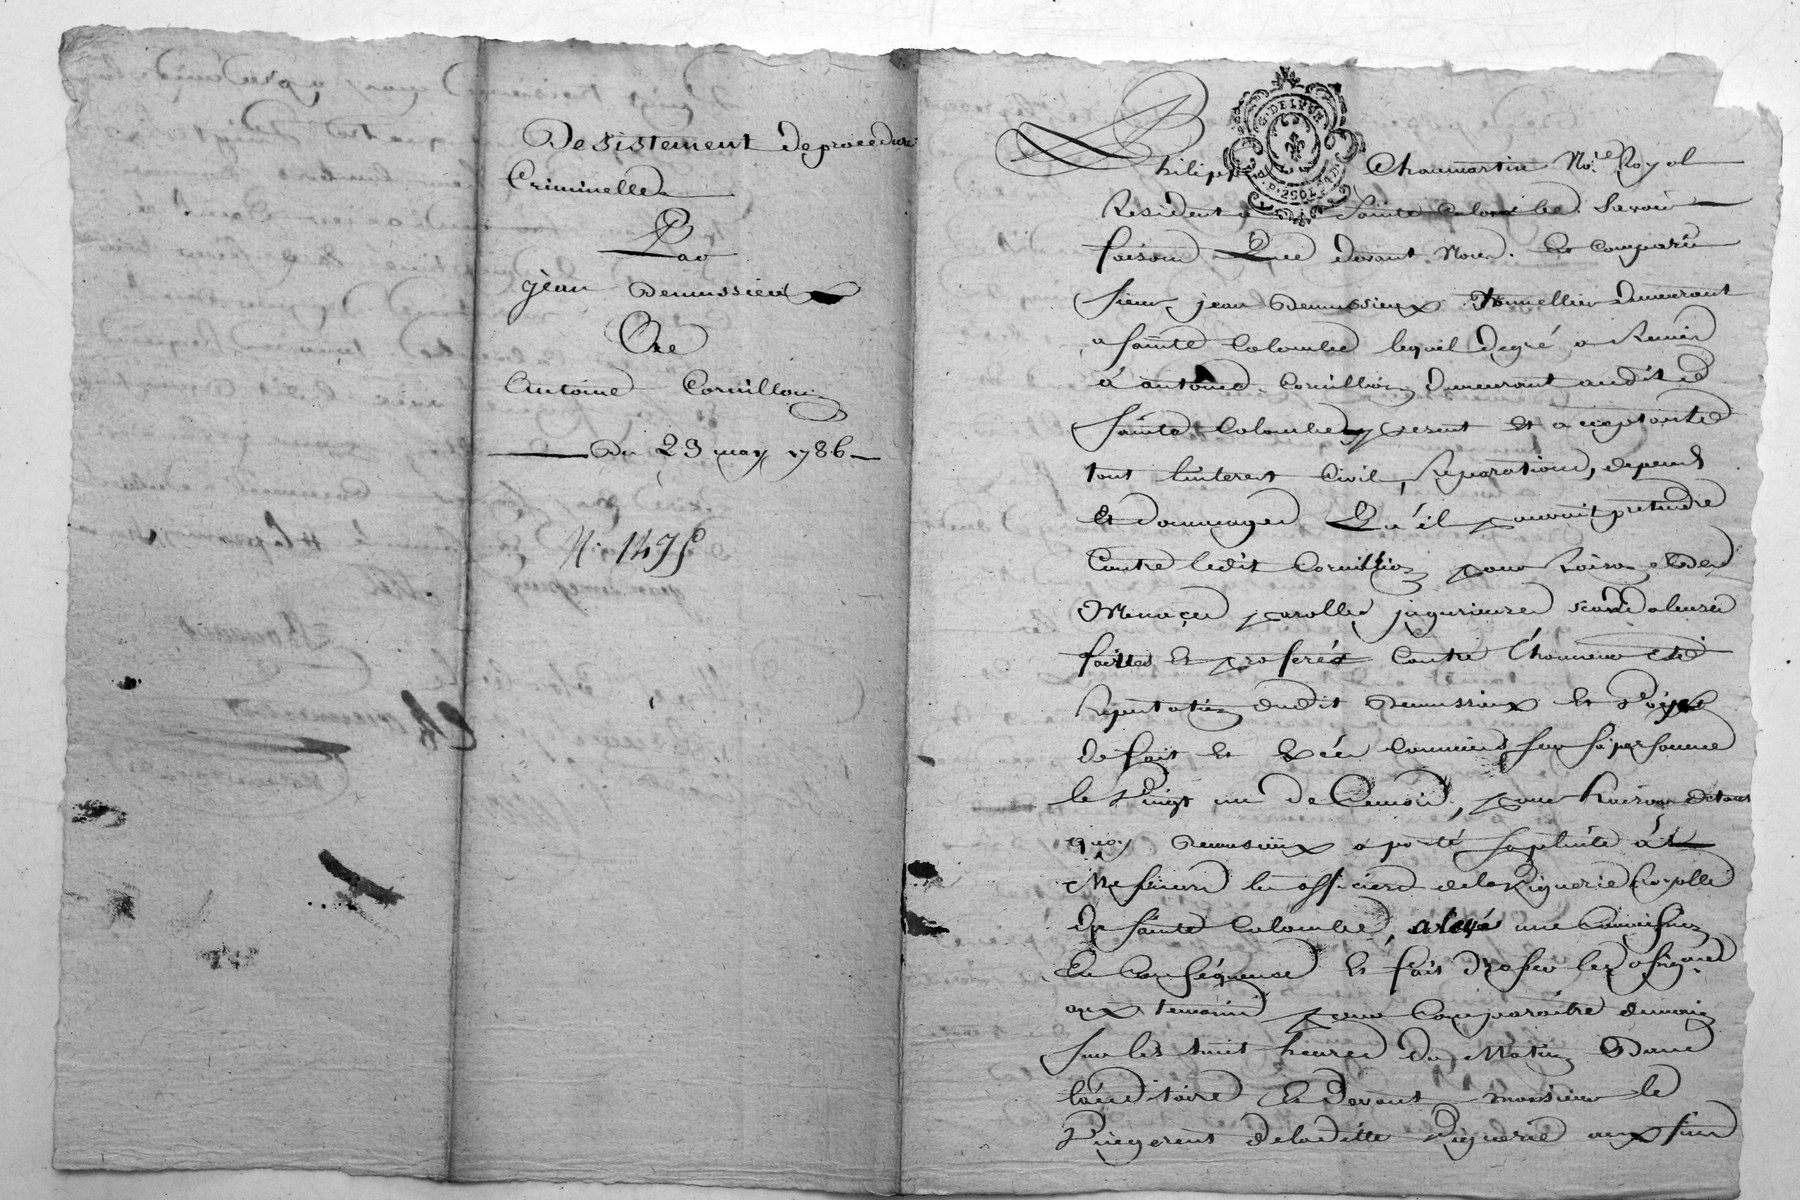 Desistement de procedure
Criminelle
Par
jean Demussieux
Ore
Antoine Cornillon
Du 23 may 1786
N. 1475
G. DE LYON
D. 2 SOLS 4 D.
Philippe Chaumartin No.re Royal
Resident a Sainte Colombe. Savoir
faisons Que devant Nous. Est comparu
sieur jean Demussieux Tonnellier demeurant
a sainte Colombe lequel de gré a Remis
à antoine Cornillion demeurant audit
sainte Colombe present et acceptant
tout l'interest Civil, Reparations, depends
et dommages Qu'il pouvoit pretendre
Contre ledit Cornillion pour Raison des
Menaçes parolles jnjurieuses scandaleuses
faittes et proferés Contre l'honneur et
Reputation dudit Demussieux et Voyes
de fait et Exés Commis sur sa personne
le Vingt un de Ce mois, pour Raison de tout
quoy Demusieux a porté sa plinte à
Messieurs les officiers de la Viguerie Royalle
de sainte Colombe,
En Consequence et fait
aux temoins pour Comparaitre demain
sur les huit heures du Matin Dans
l'auditoire et Devant monsieur le
Viegerent de la ditte Viguerie aux fins